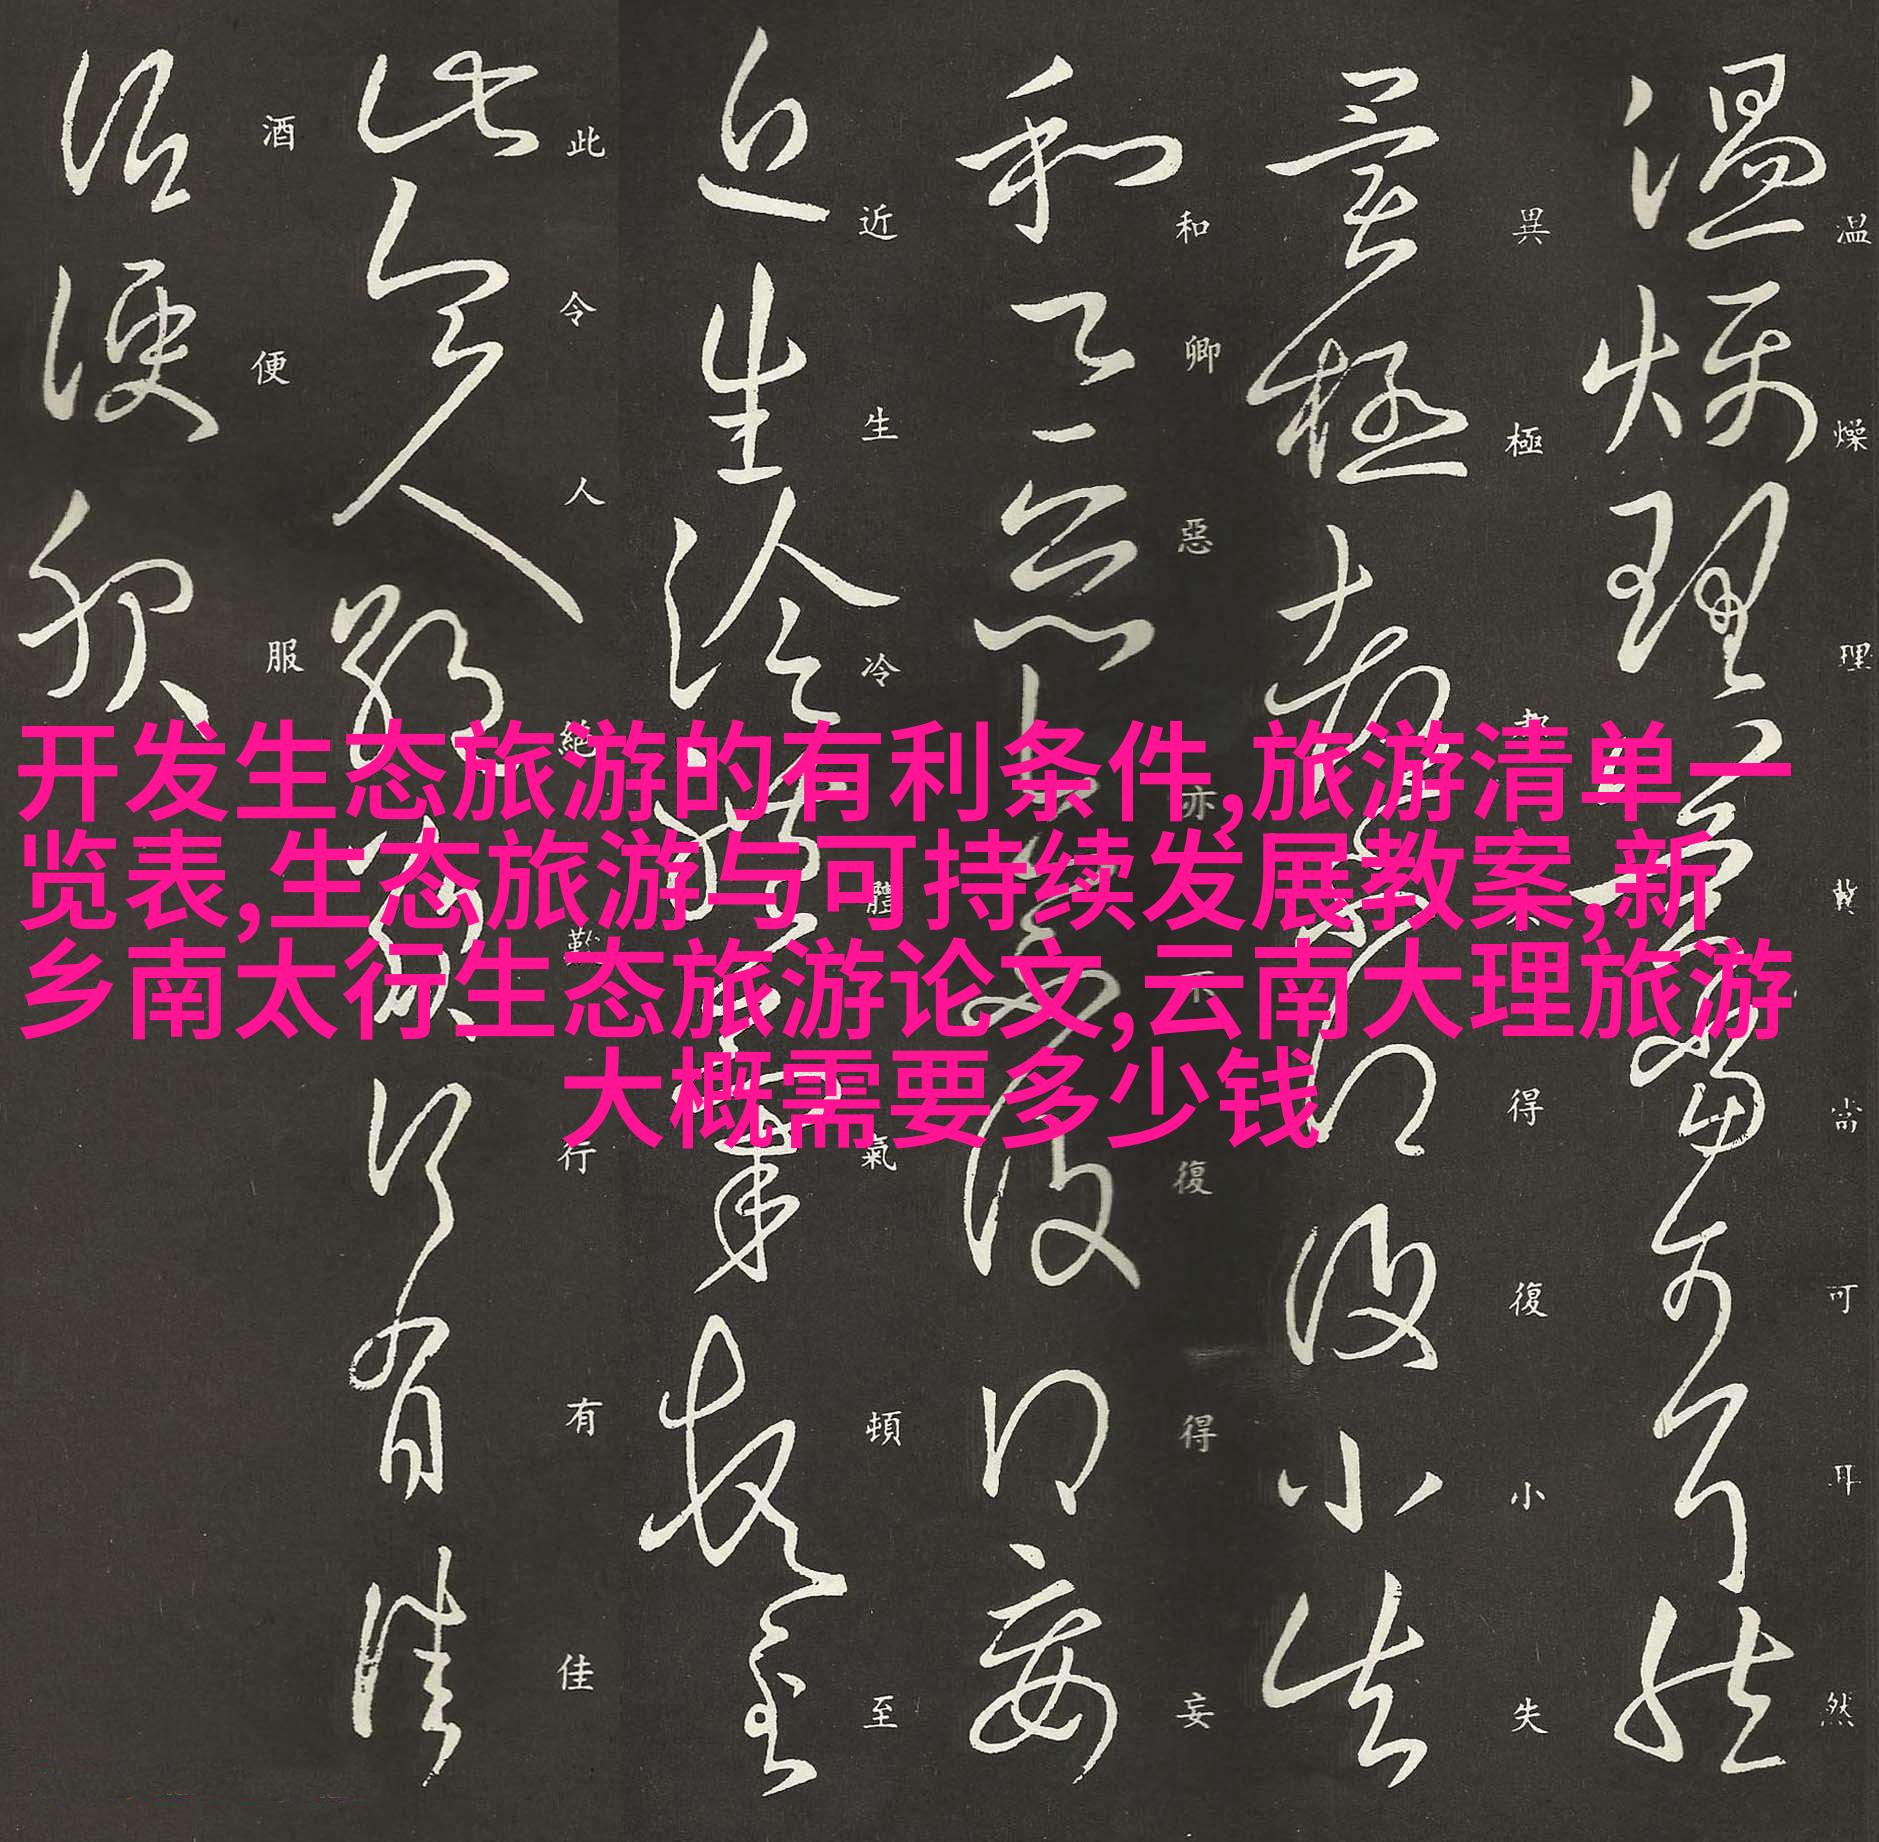 开发生态旅游的有利条件,旅游清单一
览表,生态旅游与可持续发展教案,新
乡南太行生态旅游论文,云南大理旅游
大概需要多少钱
温燥理冀當可耳然
異極都不得復小失
和卿惡亦不復得妄
近生冷體氣頓至
此令人絕歎行有佳
酒便服